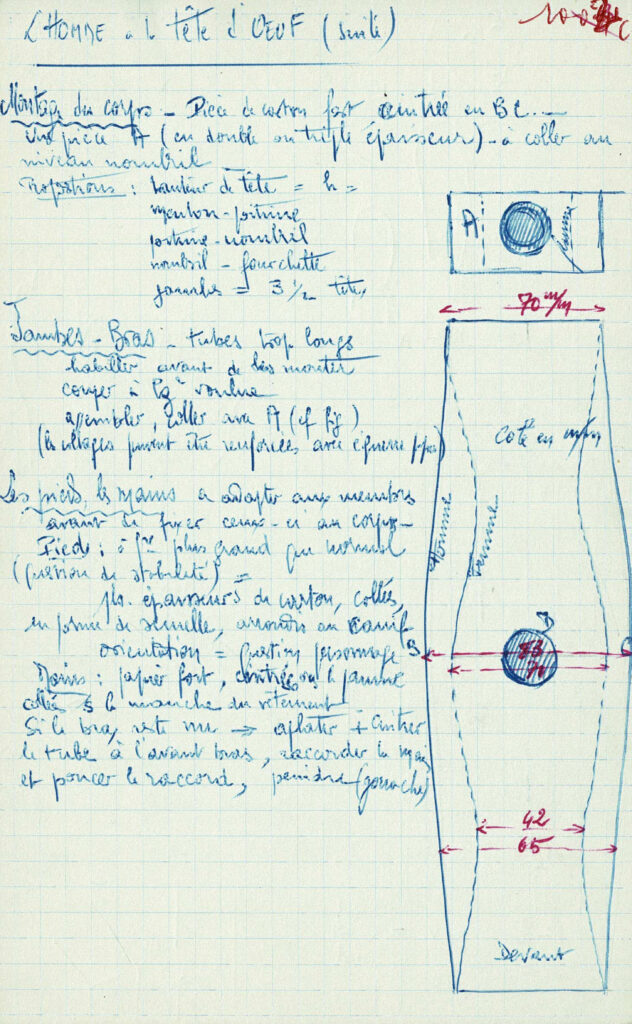 L'HOMME à la tête d'OEUF (suite)
Montage du corps - Pièce de carton fort cintrée en BC...
une pièce A (en double ou triple épaisseur) - à coller au
niveau nombril
Proportions : hauteur de tête = h =
menton-poitrine
poitrine-nombril
nombril - fourchette
jambes = 3 1/2 têtes
A
Femme
70 m/m
Jambes - Bras - tubes trop longs
habiller avant de les monter
couper à lgr voulue
assembler, coller avec A (cf fig)
(les collages peuvent être renforcés avec équerre papier)
Coté en m/m
Homme
Femme
Les pieds, les mains à adapter aux membres
avant de fixer ceux-ci au corps -
Pieds : à plus grand que normal
(question de stabilité) =
épaisseurs de carton, collées,
en forme de semelle, arrondis au canif
orientation = question personnage
B
Mains : papier fort, cintrées
collées à la manche du vêtement
Si le bras reste nu → aplatir + cintrer
le tube à l'avant bras, raccorder la main
et poncer le raccord, peindre (gouache)
42
65
Devant